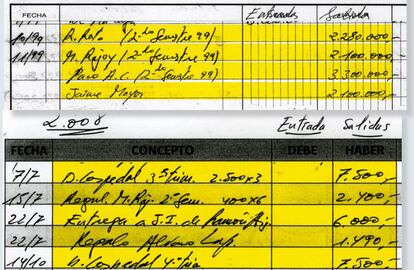 FECHA Entradas Salidas
10/99 R. Rato (2º Semestre 99) 2.280.000,-
11/99 M. Rajoy (2º Semestre 99) 2.100.000,-
Paco A.C (2º Semestre 99) 3.300.000,-
Jaime Mayor 2.100.000,-
2.008 Entrada Salidas
FECHA CONCEPTO DEBE HABER
7/7 D. Cospedal 3º trim. 2.500x3 7.500,-
15/7 M. Raj. 2º Sem. 400x6 2.400,-
22/7 Entrega a J.I. de 6.000,-
22/7 Regalo 1.490,-
14/10 D. Cospedal 4º trim 7.500,-